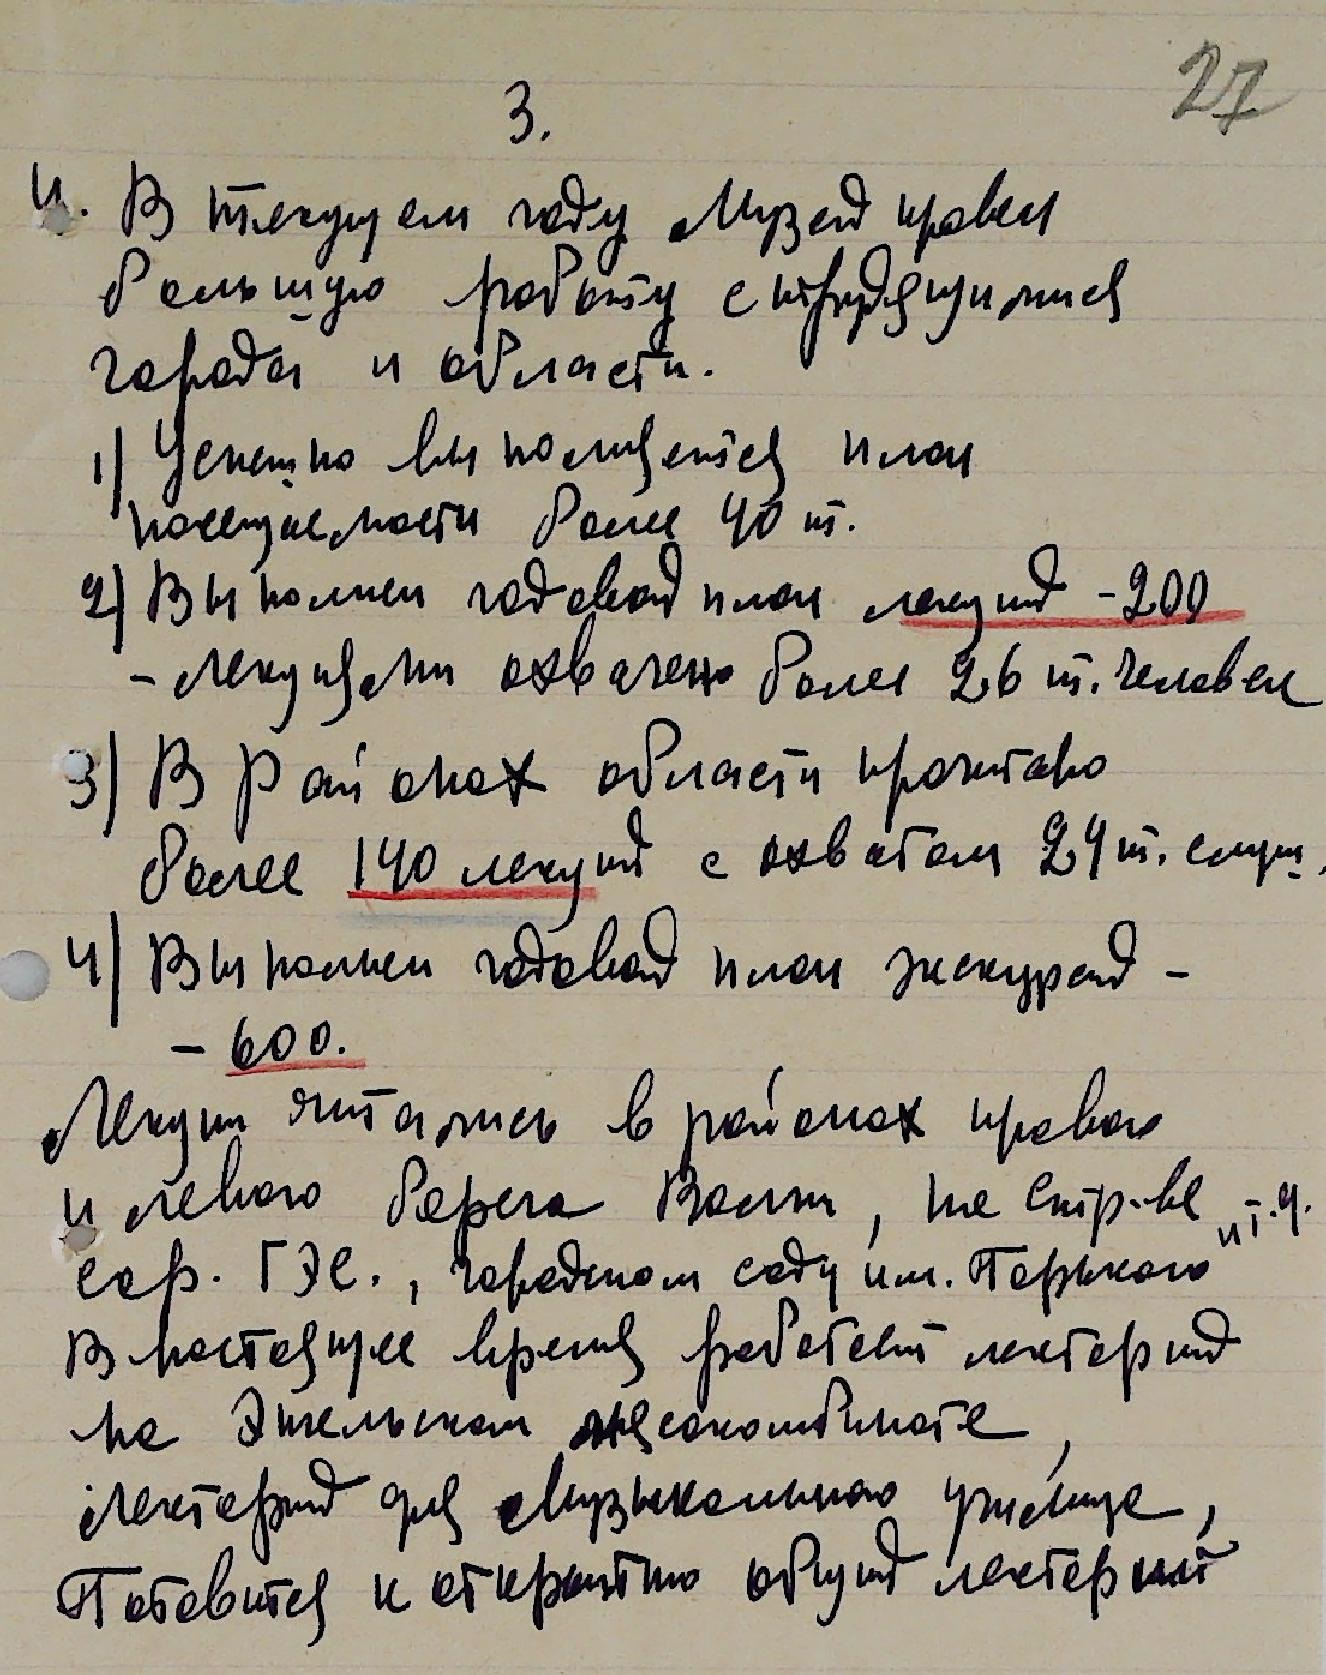 27
3.
4. В текущем году Музей провел
большую работу с трудящимися
города и области.
1) Успешно выполняется план
посещаемости более 40 т.
2) Выполнен годовой план лекций - 200
- лекциями охвачено более 26 т. человек
3) В районах области прочитано
более 140 лекций с охватом 24 т. слуш.
4) Выполнен годовой план экскурсий -
- 600.
Лекции читались в районах правого
и левого берега Волги, на стр-ве
Сар. ГЭС., городском саду им. Горького и т.д.
В настоящее время работает лекторий
на Энгельском мясокомбинате,
лекторий для Музыкального училища,
Готовится к открытию общий лекторий